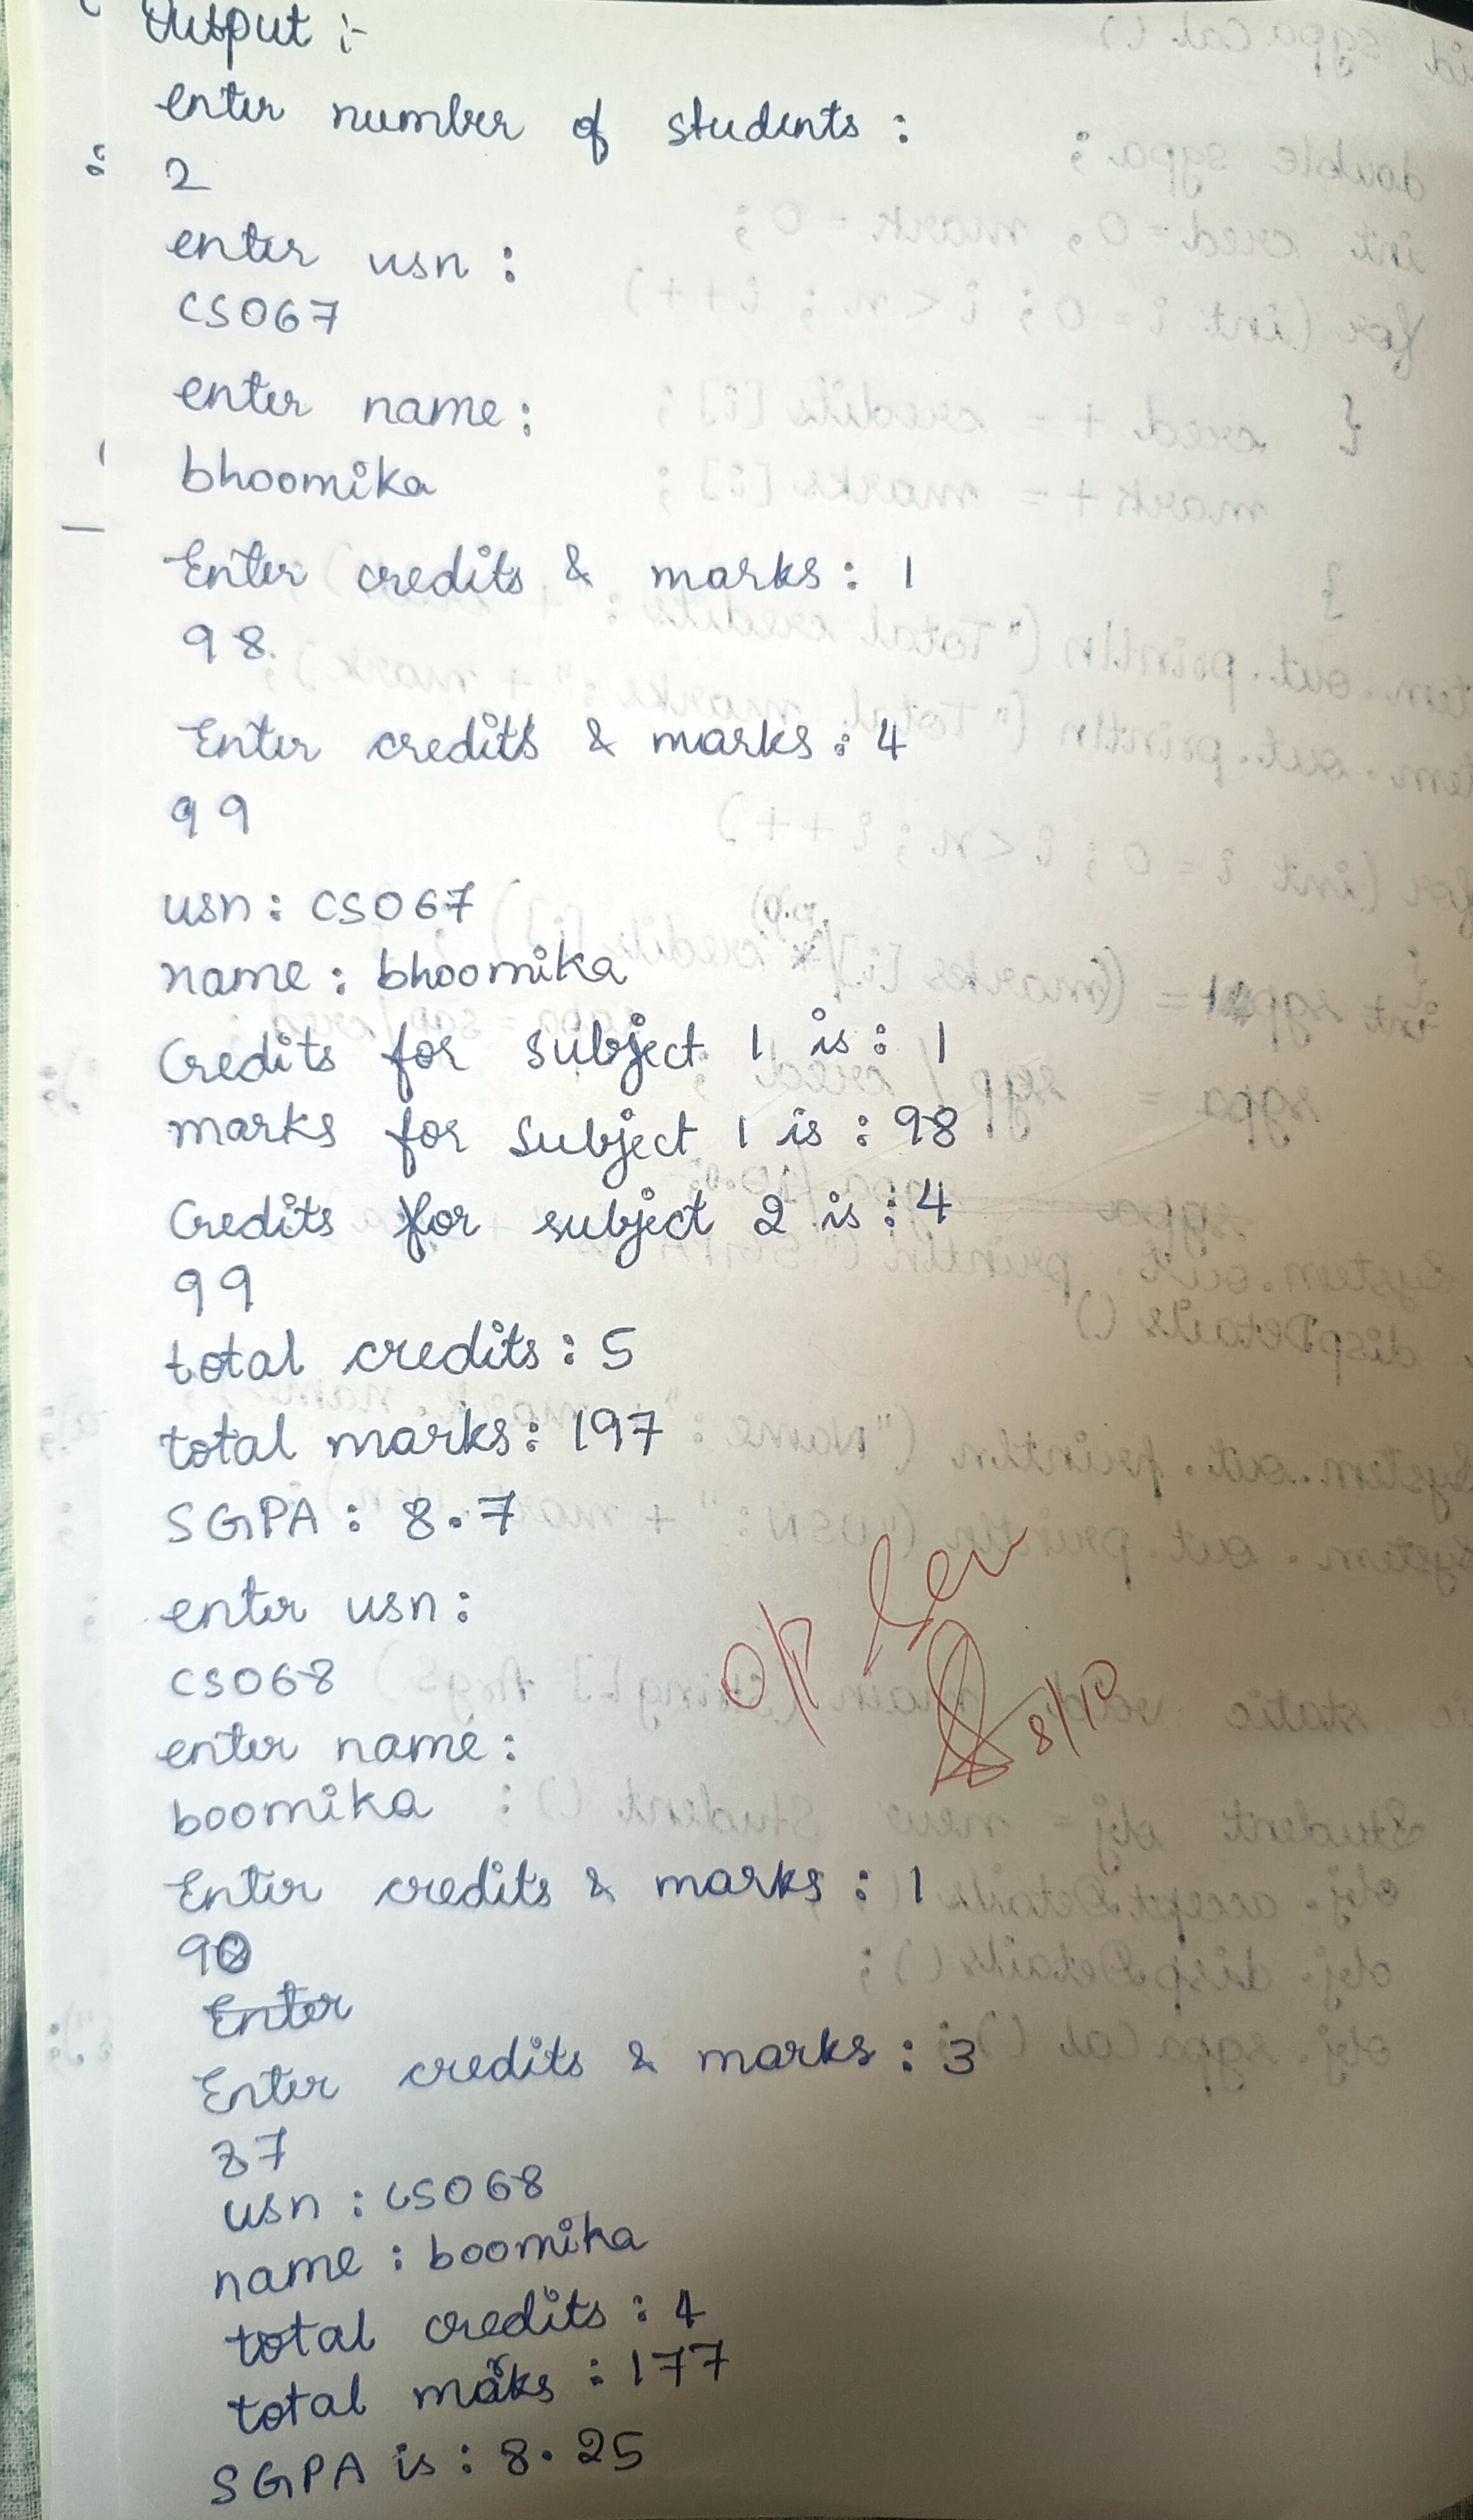 Output :-
enter number of students :
2
enter usn :
CS067
enter name :
bhoomika
Enter credits & marks : 1
98
Enter credits & marks : 4
99
usn : CS067
name : bhoomika
Credits for subject 1 is : 1
marks for subject 1 is : 98
Credits for subject 2 is : 4
99
total credits : 5
total marks : 197
SGPA : 8.7
enter usn :
CS068
enter name :
boomika
Enter credits & marks : 1
90
Enter
Enter credits & marks : 3
87
usn : CS068
name : boomika
total credits : 4
total marks : 177
SGPA is : 8.25
O/P
8/10